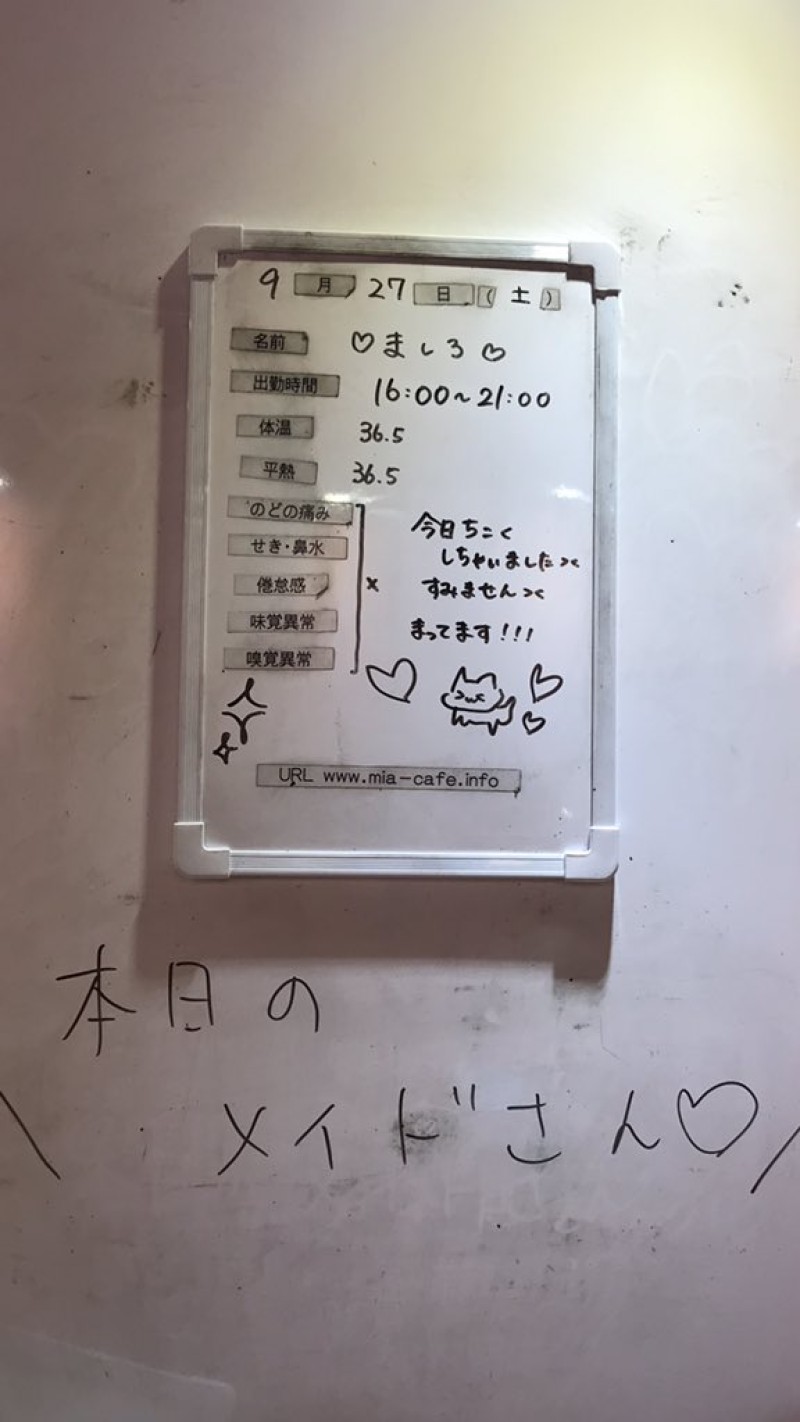 9月27日(土)
名前 ♡ましろ♡
出勤時間 16:00~21:00
体温 36.5
平熱 36.5
のどの痛み
せき・鼻水
倦怠感 ×
味覚異常
嗅覚異常
今日ちこく
しちゃいました><
すみません><
まってます!!!
URL www.mia-cafe.info
本日の
\ メイドさん♡ /